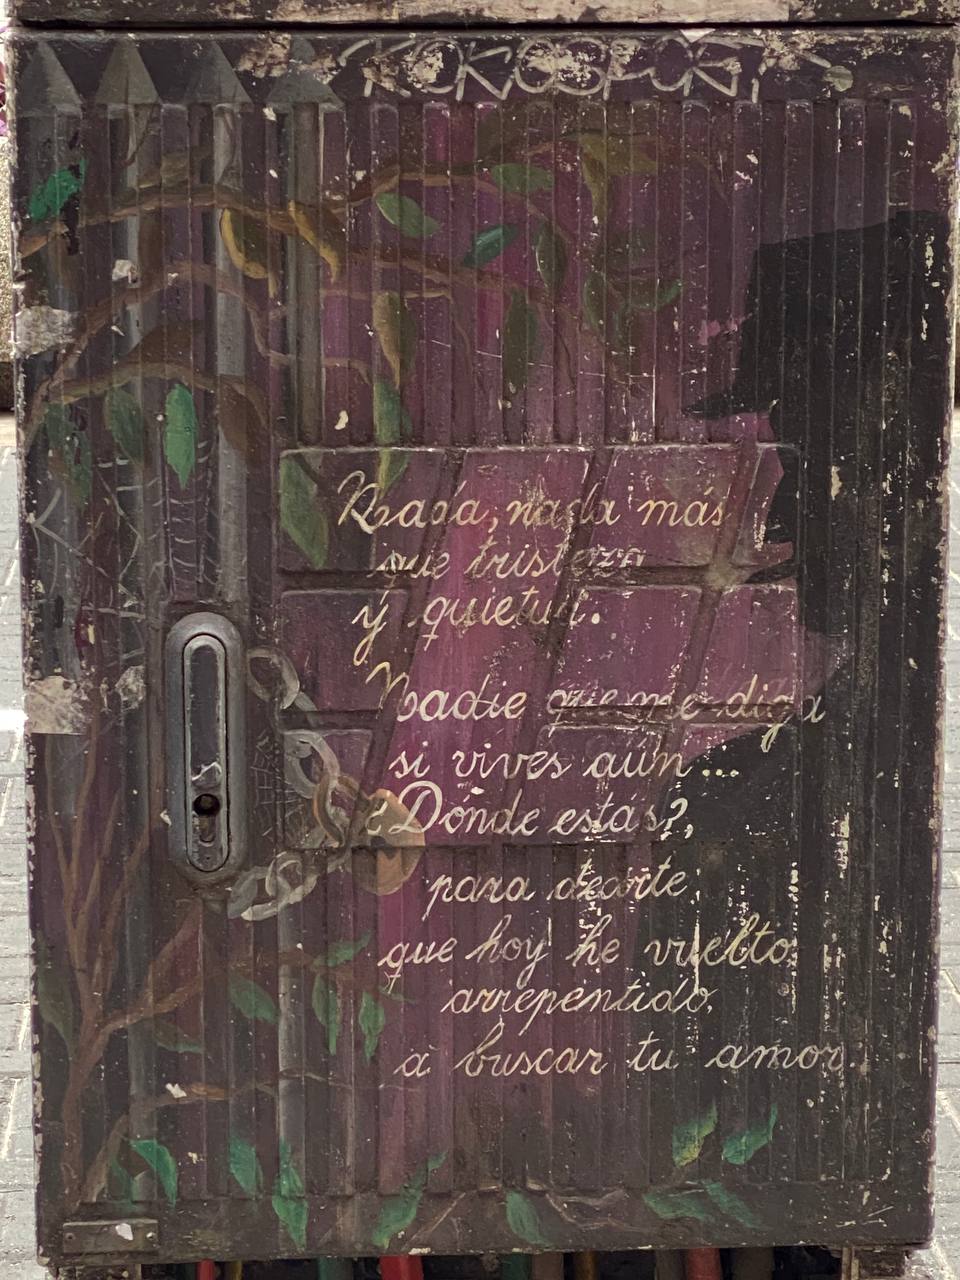 KOKOSPORT
Nada, nada más
que tristeza
y quietud.
Nadie que me diga
si vives aún...
¿Dónde estás?,
para decirte,
que hoy he vuelto
arrepentido,
a buscar tu amor.